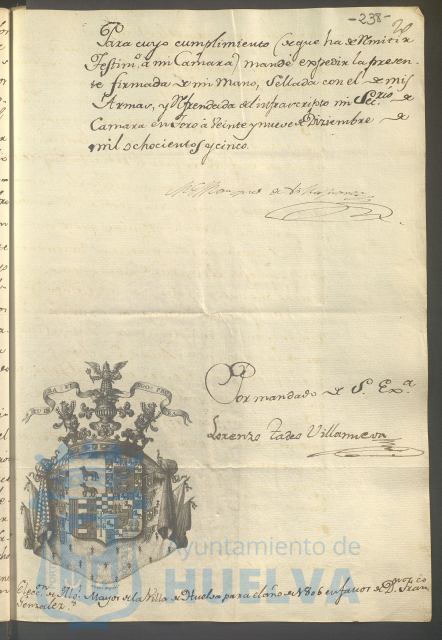 -238-
Para cuyo cumplimiento (de que ha de Remitir
Testim.º a mi Camara) mandé expedir la presen-
te firmada de mi Mano, Sellada con el de mis
Armas, y Refrendada del infrascripto mi Sec.rio de
Camara en Toro à Veinte y nueve de Diziembre de
mil ochocientos y cinco.
Por mandado de S. Ex.a
Lorenzo Tadeo Villanueva
Ayuntamiento de
HUELVA
Elecc.on de Alc.e Mayor de la Villa de Huelva para el año de 1806 en favor de D.n Fran.co
Gonzalez.